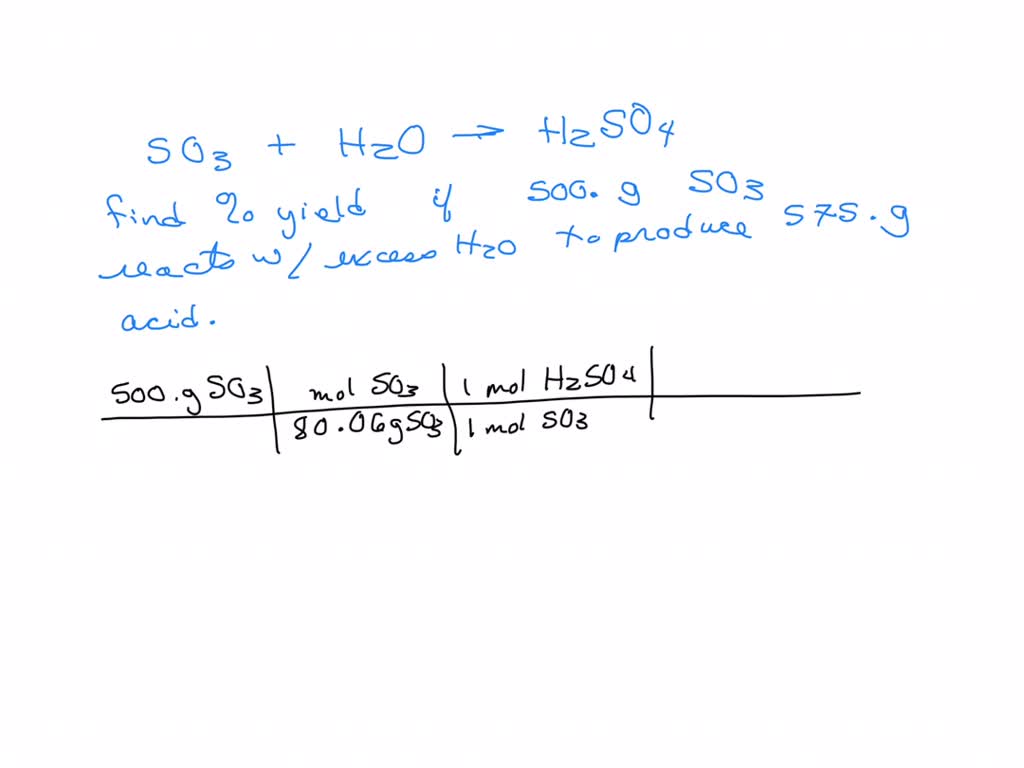 SO3 + H2O → H2SO4
find % yield if 500. g SO3
reacts w/ excess H2O to produce 575. g
acid.
500. g SO3 | mol SO3 | 1 mol H2SO4 |
80.06 g SO3 | 1 mol SO3